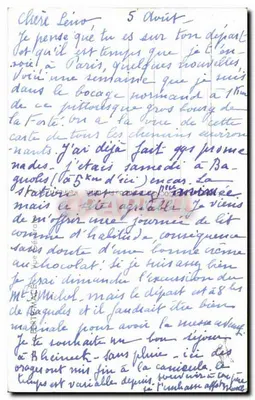 Chère Léno 5 Août -
Je pense que tu es sur ton départ
et qu'il est temps que je t'en-
voie à Paris, quelques nouvelles.
Voici une semaine que je suis
dans le bocage normand à 1 Km
de ce pittoresque gros bourg de
la Ferté. On a la vue de cette
carte de tous les chemins environ-
nants. J'ai déjà fait qqs prome
nades. J'étais samedi à Ba-
gnoles (à 5 Km d'ici) en car. La
station est assez
mais le site agréable. Je viens
de m'offrir une journée de lit
comme d'habitude, conséquence
sans doute d'une bonne crème
au chocolat! Si je suis bien
je ferai dimanche l'excursion du
Mt St Michel, mais le départ est à 8 hs
de Bagnoles et il faudrait être bien
matinale pour avoir la messe avant.
Je te souhaite un bon séjour
à Rheineck - sans pluie - ici des
orages ont mis fin à la canicule. Le
temps est variable depuis.
je t'embrasse affect